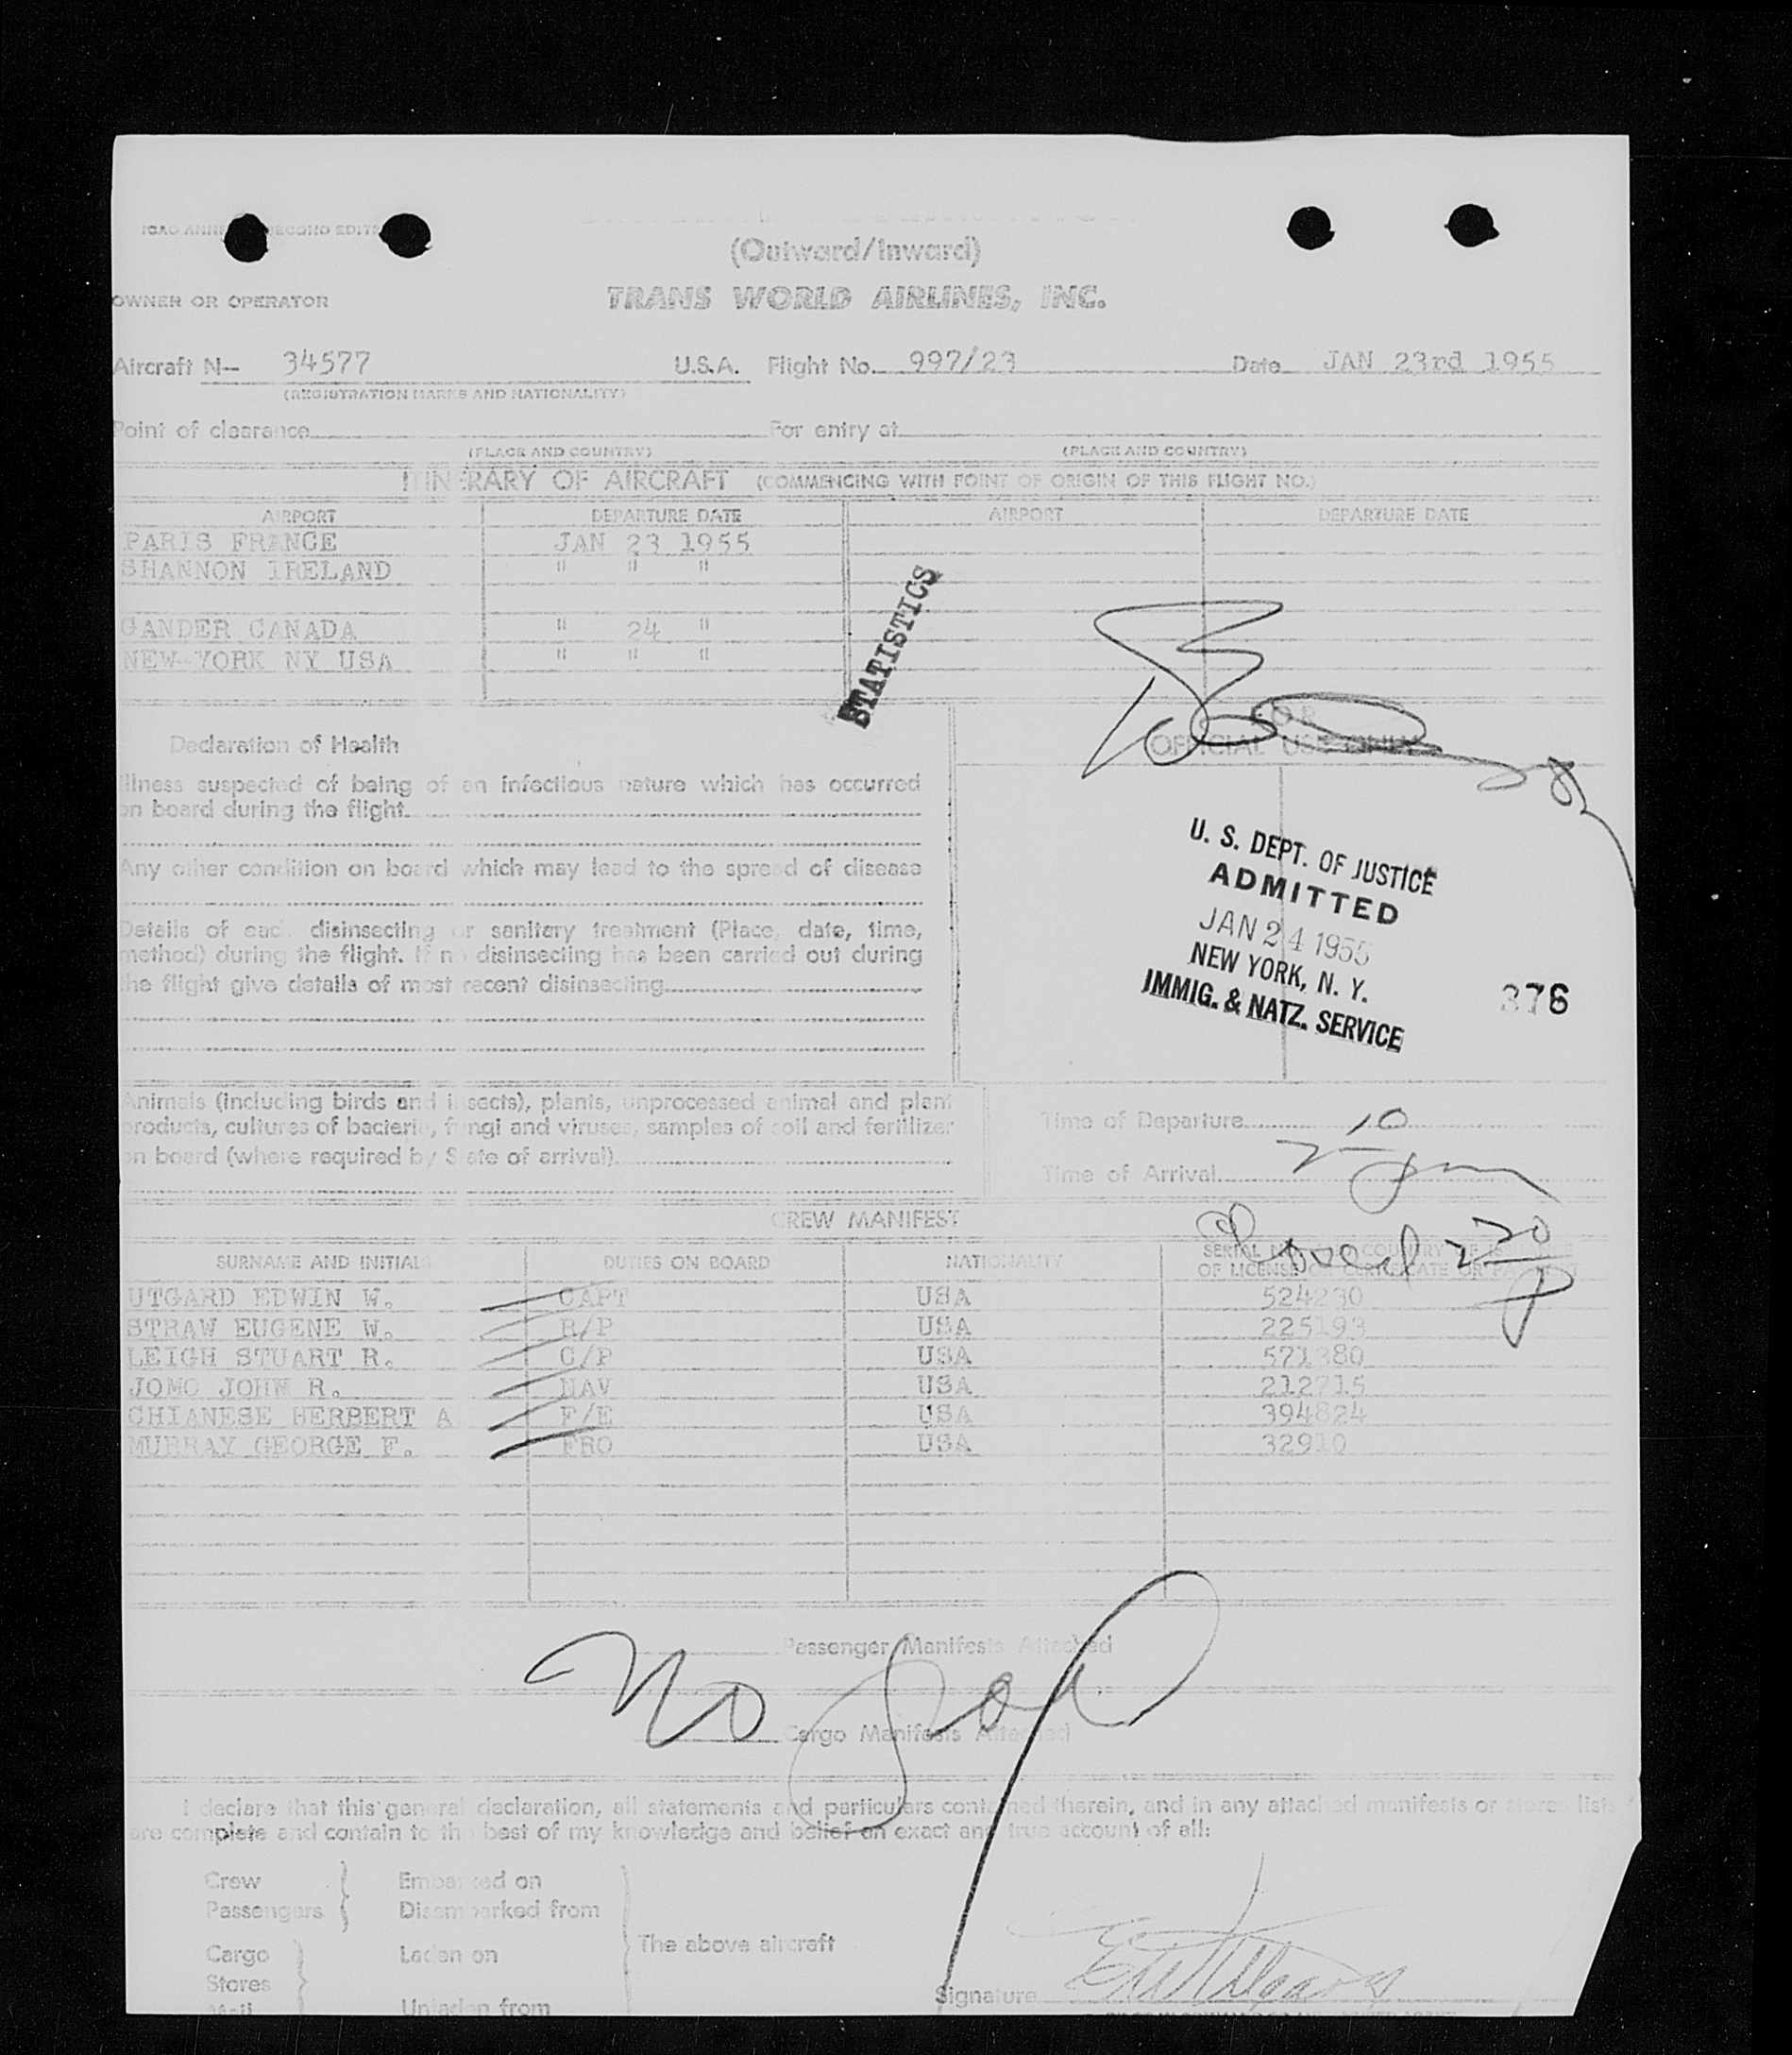 (Outward/Inward)
OWNER OR OPERATOR TRANS WORLD AIRLINES, INC.
Aircraft N-- 34577 U.S.A. Flight No. 997/23 Date JAN 23rd 1955
(REGISTRATION MARKS AND NATIONALITY)
Point of clearance For entry at
(PLACE AND COUNTRY) (PLACE AND COUNTRY)
ITINERARY OF AIRCRAFT (COMMENCING WITH POINT OF ORIGIN OF THIS FLIGHT NO.)
AIRPORT DEPARTURE DATE AIRPORT DEPARTURE DATE
PARIS FRANCE JAN 23 1955
SHANNON IRELAND " " "
GANDER CANADA " 24 "
NEW-YORK NY USA " " "
STATISTICS
Declaration of Health
FOR
OFFICIAL USE ONLY
Illness suspected of being of an infectious nature which has occurred
on board during the flight
Any other condition on board which may lead to the spread of disease
Details of each disinsecting or sanitary treatment (Place, date, time,
method) during the flight. If no disinsecting has been carried out during
the flight give details of most recent disinsecting
U. S. DEPT. OF JUSTICE
ADMITTED
JAN 24 1955
NEW YORK, N. Y.
IMMIG. & NATZ. SERVICE
376
Animals (including birds and insects), plants, unprocessed animal and plant
products, cultures of bacteria, fungi and viruses, samples of soil and fertilizer
on board (where required by State of arrival)
Time of Departure
Time of Arrival
CREW MANIFEST
SURNAME AND INITIALS DUTIES ON BOARD NATIONALITY
UTGARD EDWIN W. CAPT USA 524230
STRAW EUGENE W. R/P USA 225193
LEIGH STUART R. C/P USA 571380
JOMO JOHN R. NAV USA 212715
CHIANESE HERBERT A F/E USA 394824
MURRAY GEORGE F. FRO USA 32910
Passenger Manifests Attached
No
Cargo Manifests Attached
I declare that this general declaration, all statements and particulars contained therein, and in any attached manifests or stores lists
are complete and contain to the best of my knowledge and belief an exact and true account of all:
Crew Embarked on
Passengers Disembarked from
The above aircraft
Cargo Laden on
Stores
Mail Unladen from
Signature